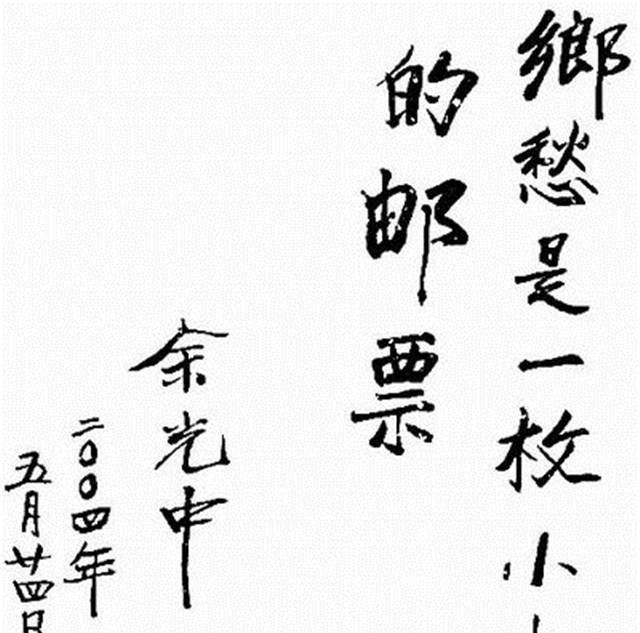 鄉愁是一枚小
的邮票
余光中
二〇〇四年
五月廿四日